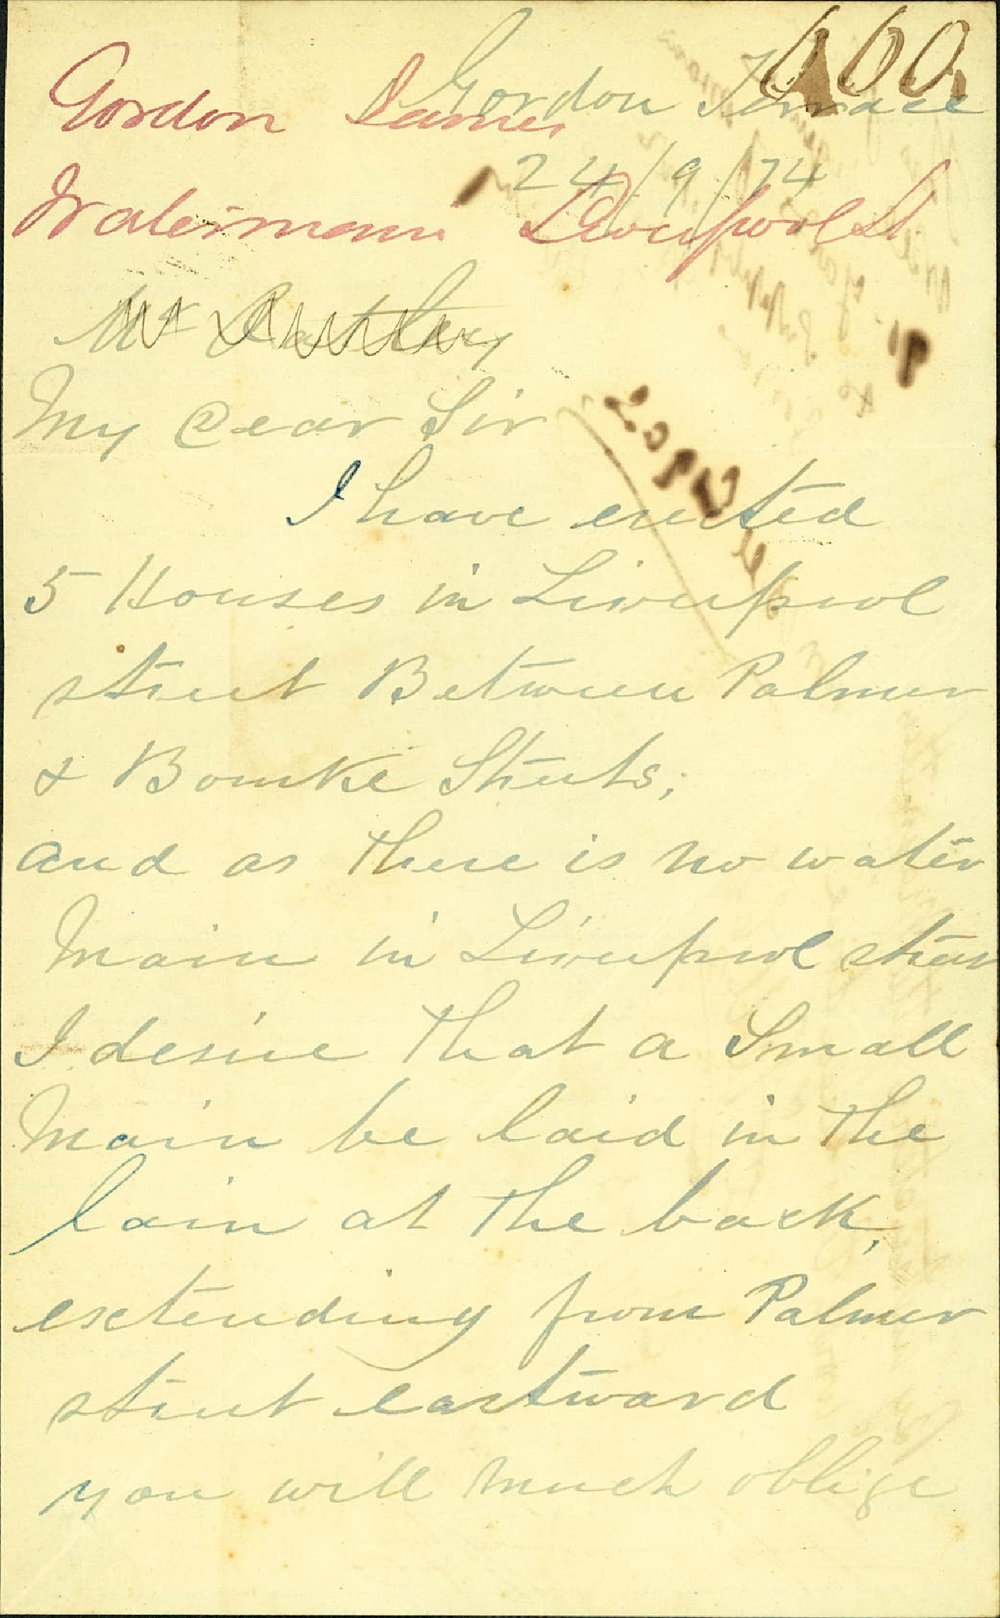 660.
Gordon Terrace
Gordon James
24/9/74
Watermain Liverpool St.
Mr
My Dear Sir
I have erected
5 Houses in Liverpool
street Between Palmer
& Bourke Streets;
and as there is no water
Main in Liverpool street
I desire that a Small
Main be laid in the
lain at the back,
exctending from Palmer
street eastward
you will much oblige